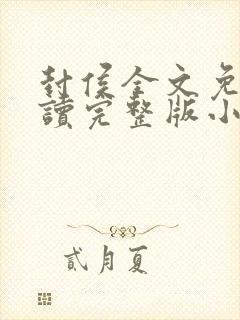 封侯全文免
讀完整版小
貳月夏